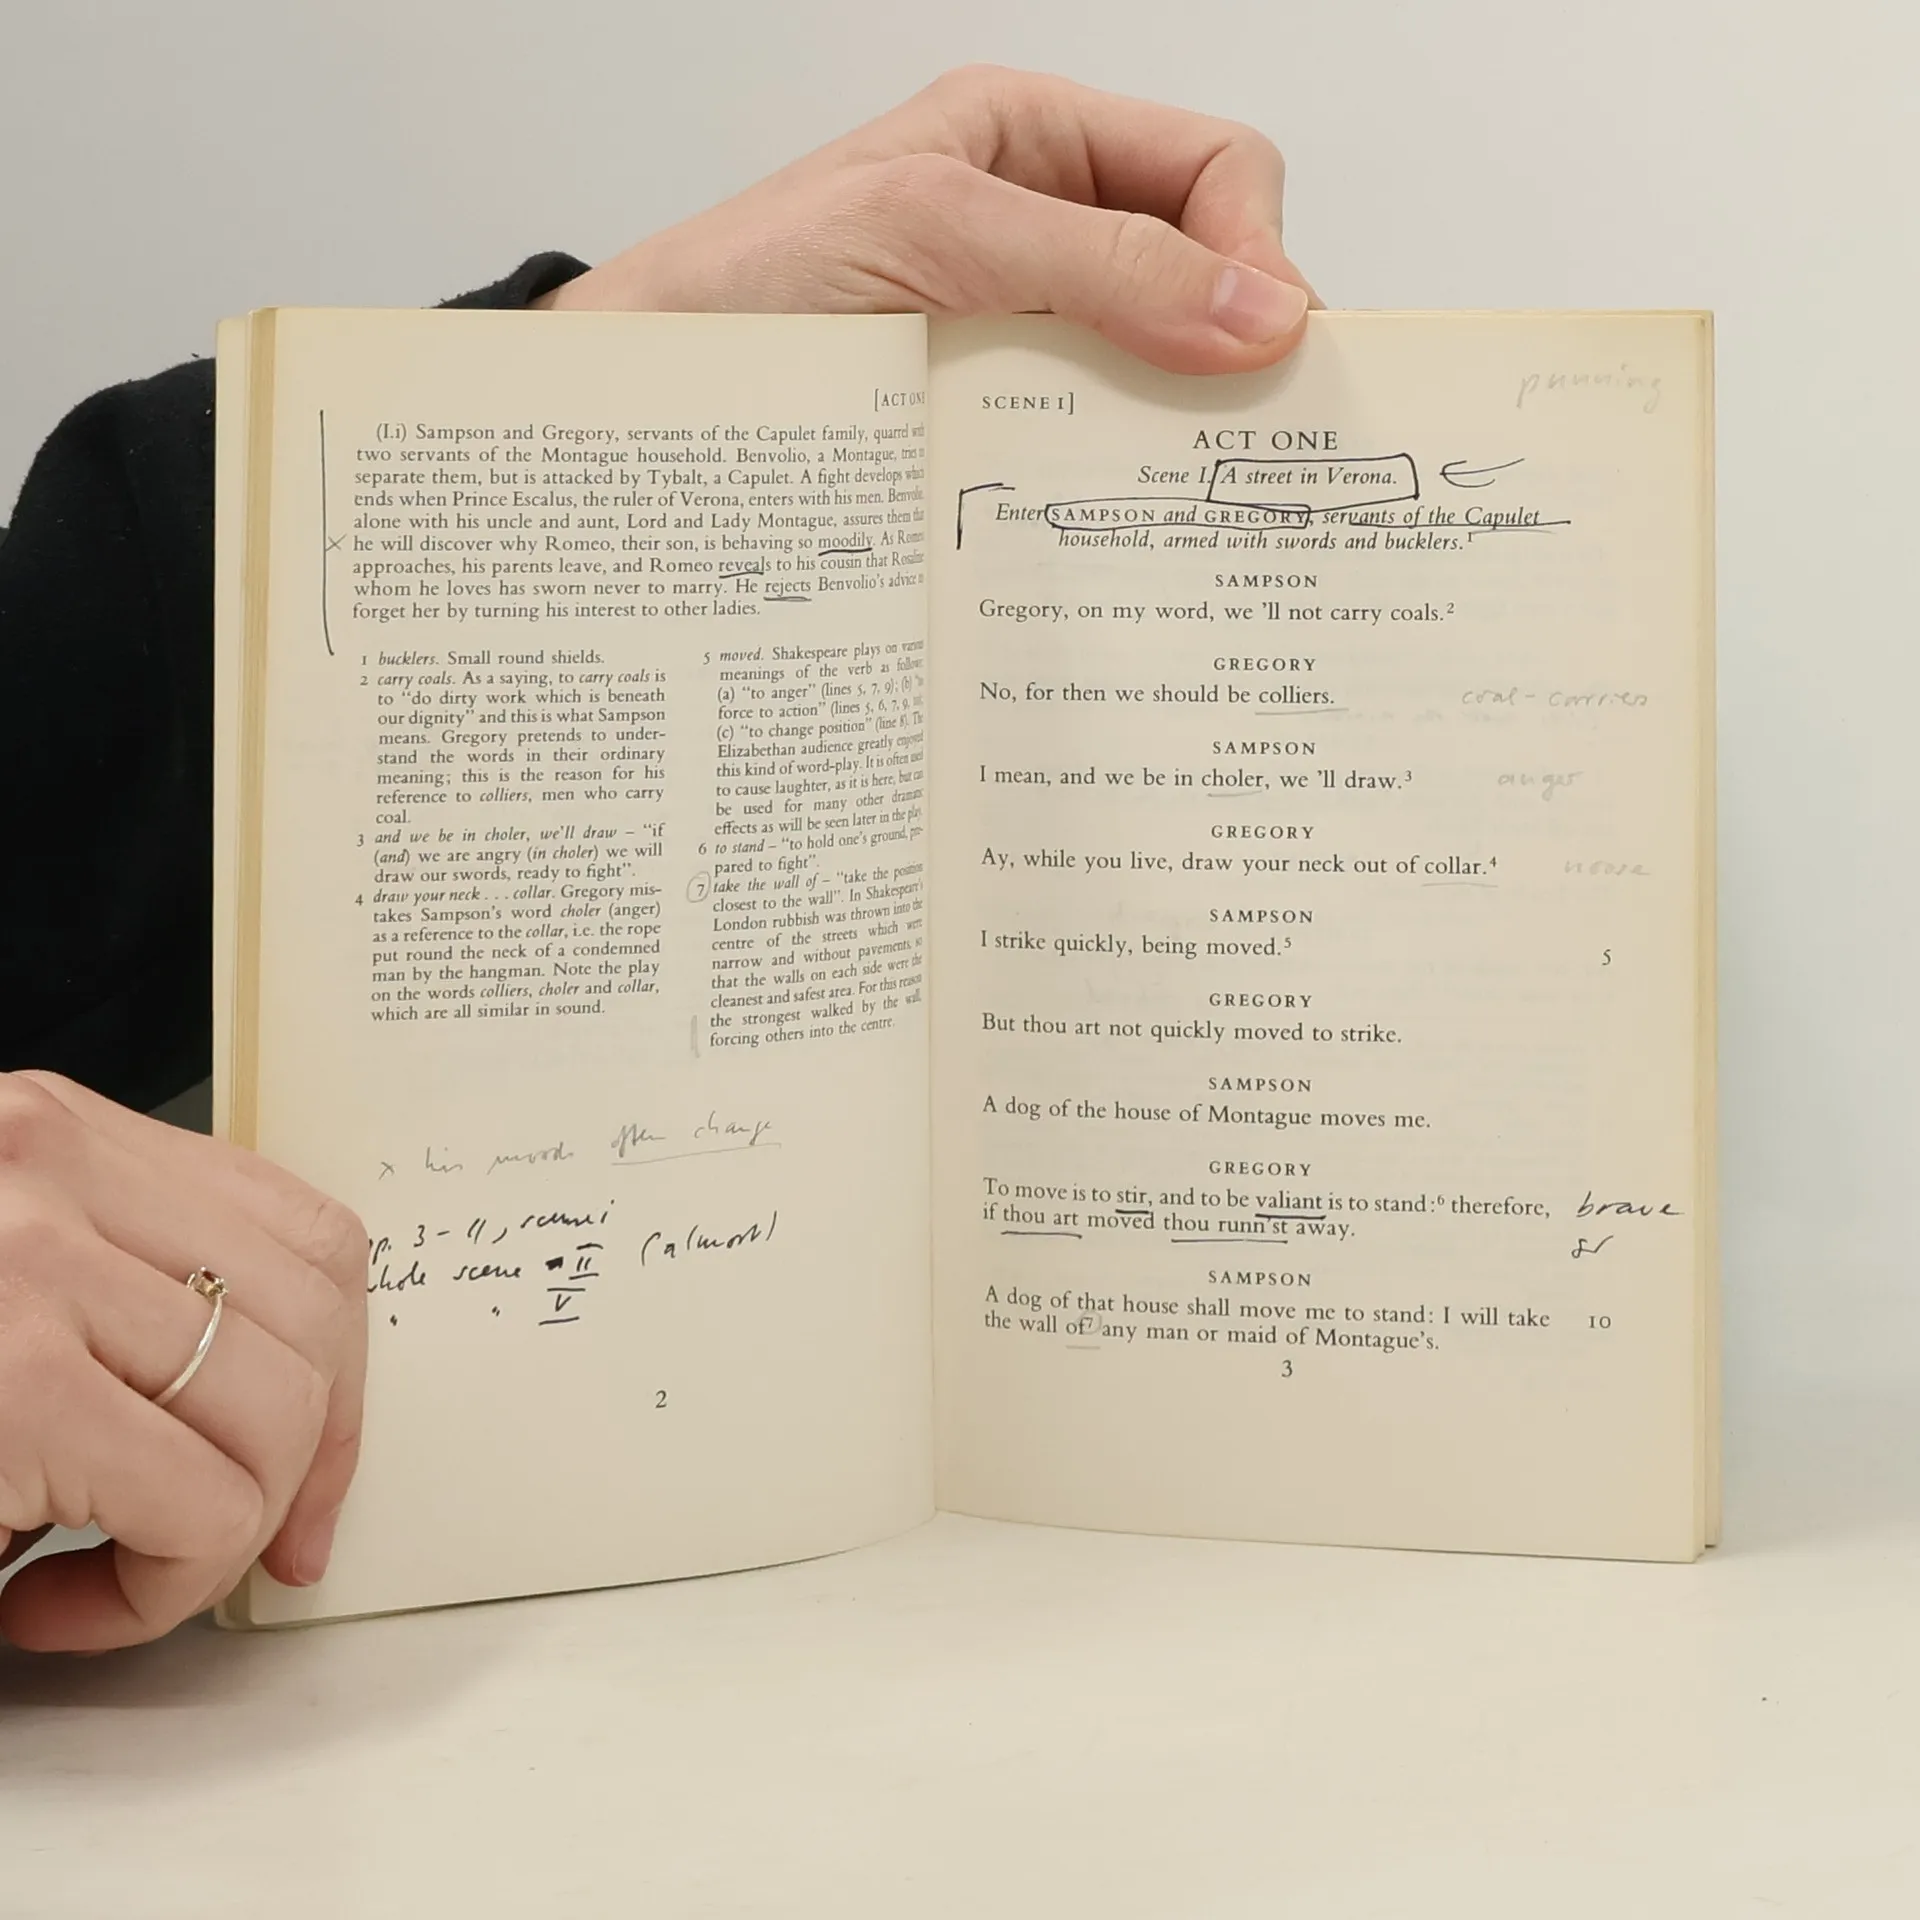 [ACT ONE
(I.i) Sampson and Gregory, servants of the Capulet family, quarrel with
two servants of the Montague household. Benvolio, a Montague, tries to
separate them, but is attacked by Tybalt, a Capulet. A fight develops which
ends when Prince Escalus, the ruler of Verona, enters with his men. Benvolio,
alone with his uncle and aunt, Lord and Lady Montague, assures them that
he will discover why Romeo, their son, is behaving so moodily. As Romeo
approaches, his parents leave, and Romeo reveals to his cousin that Rosaline
whom he loves has sworn never to marry. He rejects Benvolio's advice to
forget her by turning his interest to other ladies.
1 bucklers. Small round shields.
2 carry coals. As a saying, to carry coals is
to "do dirty work which is beneath
our dignity" and this is what Sampson
means. Gregory pretends to under-
stand the words in their ordinary
meaning; this is the reason for his
reference to colliers, men who carry
coal.
3 and we be in choler, we'll draw – "if
(and) we are angry (in choler) we will
draw our swords, ready to fight".
4 draw your neck . . . collar. Gregory mis-
takes Sampson's word choler (anger)
as a reference to the collar, i.e. the rope
put round the neck of a condemned
man by the hangman. Note the play
on the words colliers, choler and collar,
which are all similar in sound.
5 moved. Shakespeare plays on various
meanings of the verb as follows:
(a) "to anger" (lines 5, 7, 9); (b) "to
force to action" (lines 5, 6, 7, 9, 10);
(c) "to change position" (line 8). The
Elizabethan audience greatly enjoyed
this kind of word-play. It is often used
to cause laughter, as it is here, but can
be used for many other dramatic
effects as will be seen later in the play.
6 to stand – "to hold one's ground, pre-
pared to fight".
7 take the wall of – "take the position
closest to the wall". In Shakespeare's
London rubbish was thrown into the
centre of the streets which were
narrow and without pavements, so
that the walls on each side were the
cleanest and safest area. For this reason
the strongest walked by the wall,
forcing others into the centre.
x his moods often change
pp. 3 - 11, scene i
whole scene II (almost)
" " V
2
punning
SCENE I]
ACT ONE
Scene I. A street in Verona.
Enter SAMPSON and GREGORY, servants of the Capulet
household, armed with swords and bucklers.1
SAMPSON
Gregory, on my word, we 'll not carry coals.2
GREGORY
No, for then we should be colliers. coal-carriers
SAMPSON
I mean, and we be in choler, we 'll draw.3 anger
GREGORY
Ay, while you live, draw your neck out of collar.4 noose
SAMPSON
I strike quickly, being moved.5 5
GREGORY
But thou art not quickly moved to strike.
SAMPSON
A dog of the house of Montague moves me.
GREGORY
To move is to stir, and to be valiant is to stand:6 therefore, brave
if thou art moved thou runn'st away.
SAMPSON
A dog of that house shall move me to stand: I will take 10
the wall of7 any man or maid of Montague's.
3